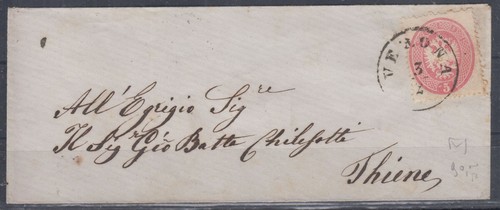 VERONA
All'Egregio Sig.re
Il Sig.r Gio Batta Chilesotti
Thiene